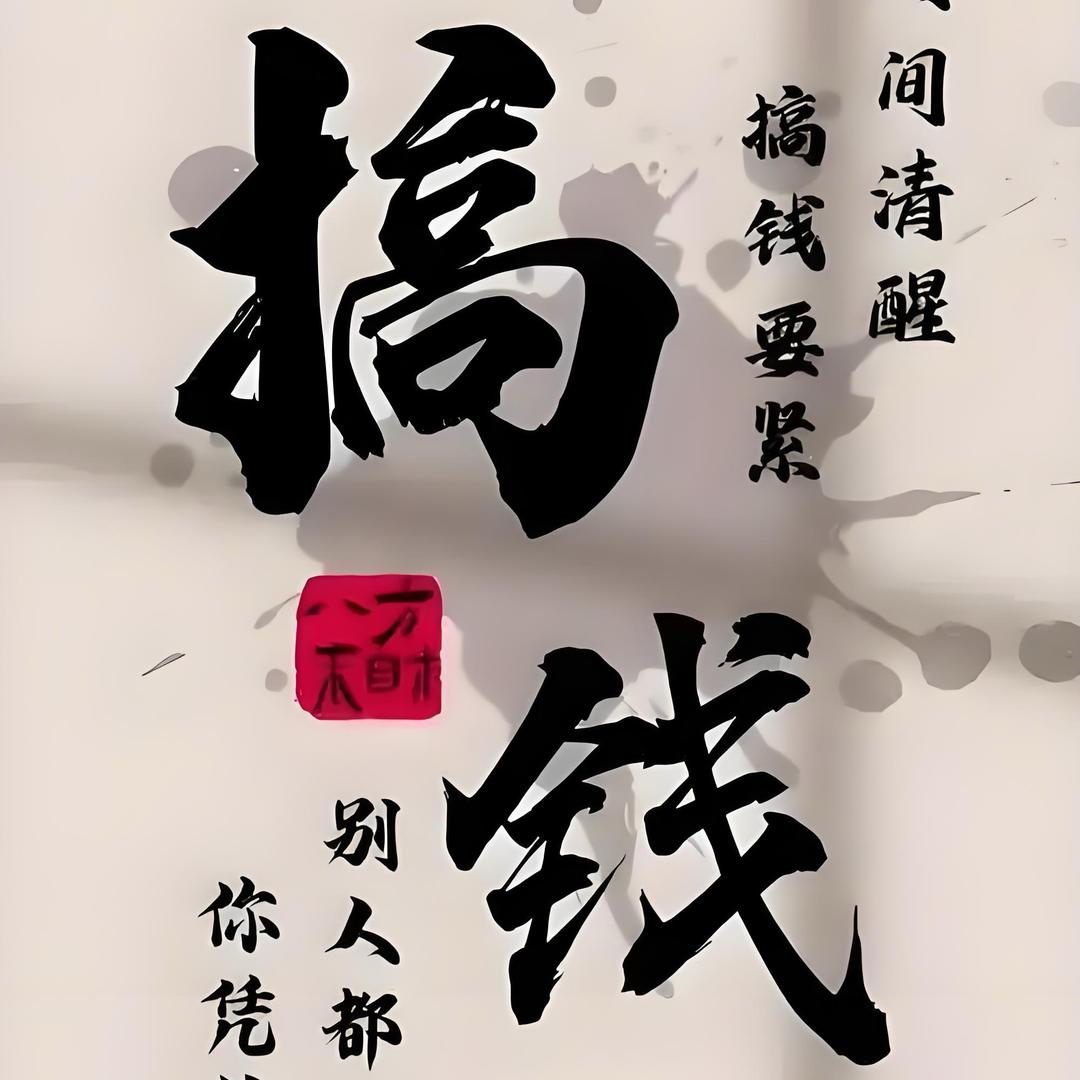 间清醒
搞钱要紧
搞钱
别人都
你凭